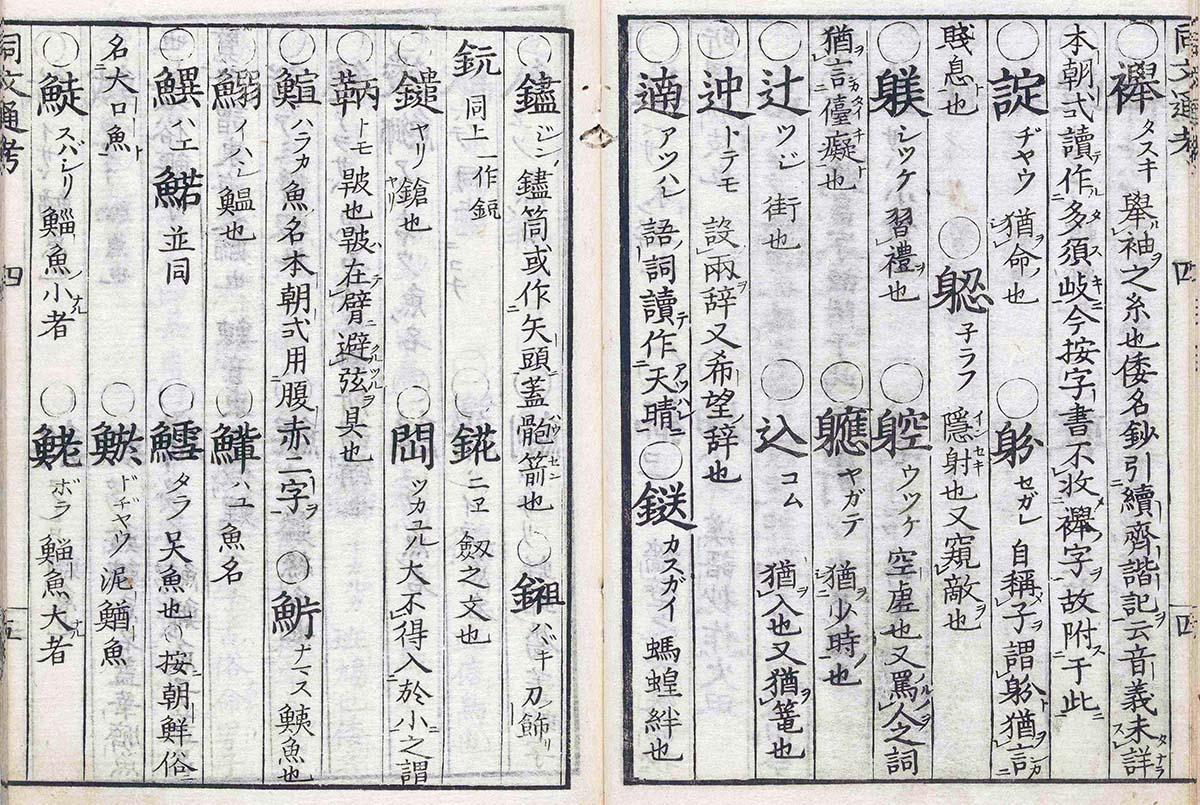 同文通考 四 四
○襷 タスキ 擧袖之糸也倭名鈔引續齊諧記云音義未詳
本朝式讀作多須岐今按字書不收襷字故附于此
○諚 ヂヤウ 猶命也 ○躮 セガレ 自稱子謂躮猶言
賤息也 ○躵 子ラフ 隱射也又窺敵也
○躾 シツケ 習禮也 ○躻 ウツケ 空虚也又罵人之詞
猶言儓癡也 ○軈 ヤガテ 猶少時也
○辻 ツジ 街也 ○込 コム 猶入也又猶篭也
○迚 トテモ 設兩辞又希望辞也
○遖 アツハレ 語詞讀作天晴 ○鎹 カスガイ 螞蝗絆也
○鑓 ジン 鑓筒或作矢頭蓋骲箭也 ○鎺 ハヾキ 刀飾
鈨 同上一作鋭 ○錵 ニヱ 劔之文也
○鑓 ヤリ 鎗也 ○閊 ツカユル 大不得入於小之謂
○鞆 トモ 皸也皸在臂避弦具也
○鰚 ハラカ 魚名本朝式用腹赤二字 ○魸 ナマス 鮧魚也
○鰯 イハシ 鰮也 ○鯯 ハユ 魚名
○鱞 ハエ 鰙 並同 ○鱈 タラ 吴魚也按朝鮮俗
名大口魚 ○鯲 ドヂヤウ 泥鰌魚
○鯐 スバシリ 鯔魚小者 ○鮱 ボラ 鯔魚大者
同文通考 四 五